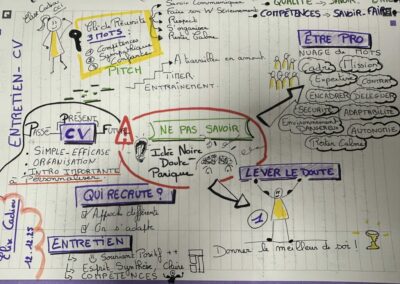 ENTRETIEN - CV
Clé de Réussite
3 MOTS
Compétences
Sympathique
Confiance
PITCH
Savoir Communiquer
Respect
Rester Calme
QUALITÉ → SAVOIR
COMPÉTENCES → SAVOIR-FAIRE
À travailler en amont
TIMER
ENTRAÎNEMENT
ÊTRE PRO
NUAGE de MOTS
Cadre
Mission
Expertise
CONTRAT
ENCADRER
DÉLÉGUER
SÉCURITÉ
ADAPTABILITÉ
Environnement
DANGEREUX
AUTONOMIE
Rester Calme
PASSÉ
PRÉSENT
FUTUR
CV
SIMPLE - EFFICASE
ORGANISATION
INTRO IMPORTANTE
Personnaliser
NE PAS SAVOIR
Idée Noire
Doute
Panique
LEVER LE DOUTE
1
Donner le meilleur de soi !
QUI RECRUTE ?
Approche différente
On s'adapte
ENTRETIEN
Souriant Positif ++
Esprit Synthèse, Claire
COMPÉTENCES
12.12.25